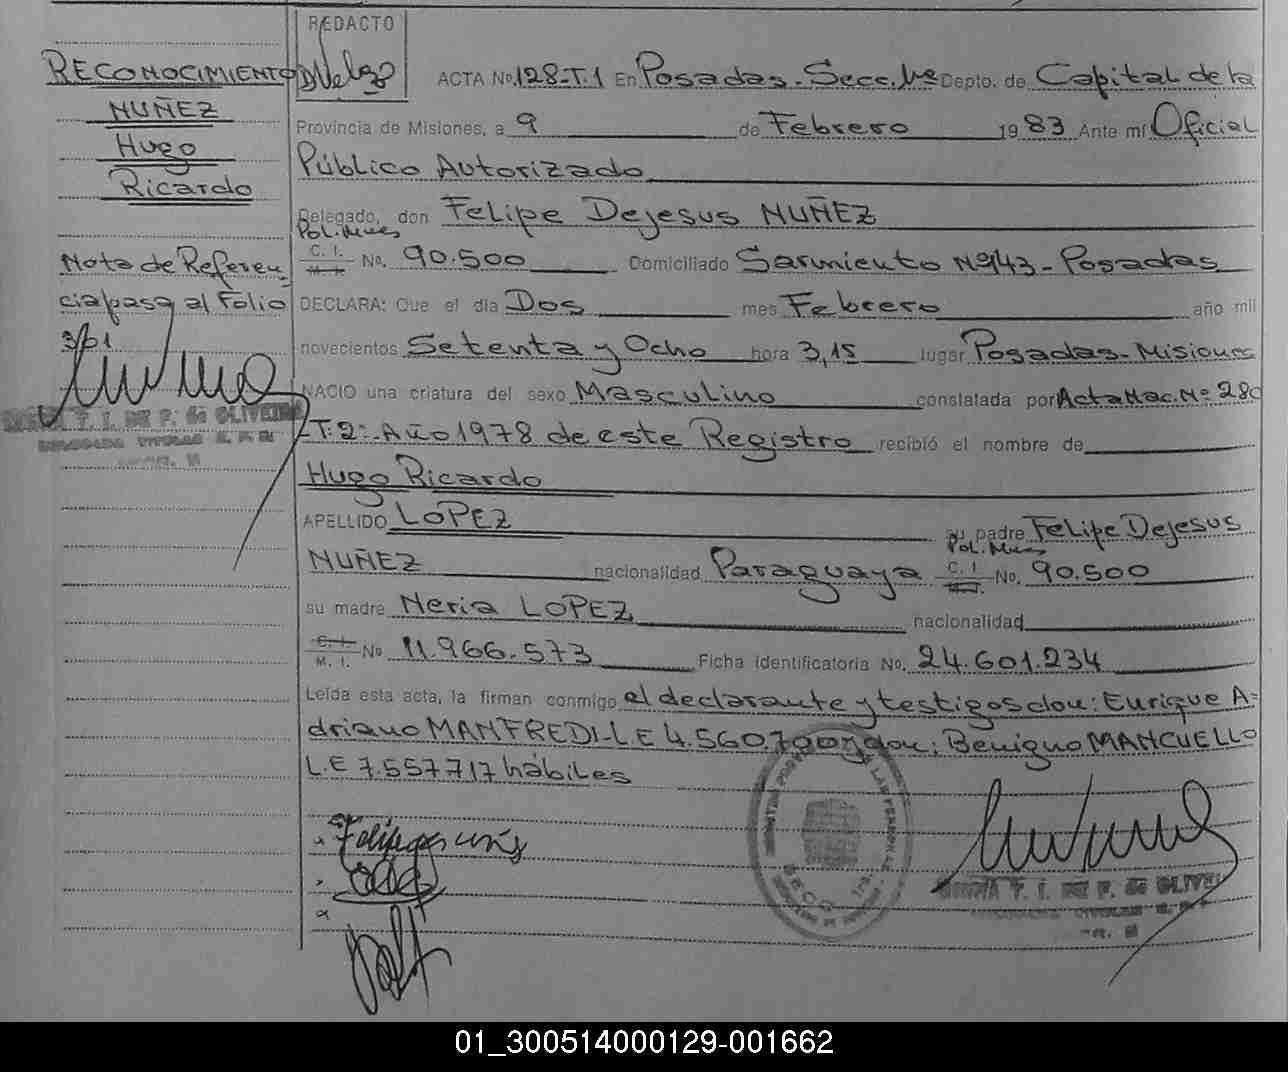 REDACTO
RECONOCIMIENTO
NUÑEZ
Hugo
Ricardo
Nota de Referen
cia pasa al Folio
301
ACTA No. 128-T.1 En Posadas-Secc.1ra Depto. de Capital de la
Provincia de Misiones, a 9 de Febrero 1983 Ante mí Oficial
Público Autorizado
Delegado, don Felipe Dejesus NUÑEZ
Pol.Mnes
C. I. M. I. No. 90.500 Domiciliado Sarmiento Nº943-Posadas
DECLARA: Que el día Dos mes Febrero año mil
novecientos Setenta y Ocho hora 3,15 lugar Posadas-Misiones
NACIO una criatura del sexo Masculino constatada por Acta Nac.Nº 280
-T:2:-Año 1978 de este Registro recibió el nombre de
Hugo Ricardo
APELLIDO LOPEZ su padre Felipe Dejesus
Pol.Mnes
NUÑEZ nacionalidad Paraguaya C. I. No. 90.500
su madre Neria LOPEZ nacionalidad
C. I. M. I. No 11.966.573 Ficha identificatoria No. 24.601.234
Leída esta acta, la firman conmigo el declarante y testigos don: Enrique A=
driano MANFREDI-L E 4.560. don: Benigno MANCUELLO
L.E 7.557.717 hábiles
T. I. DE P. de OLIVEIRA
T. I. DE P. de OLIVEI
01_300514000129-001662